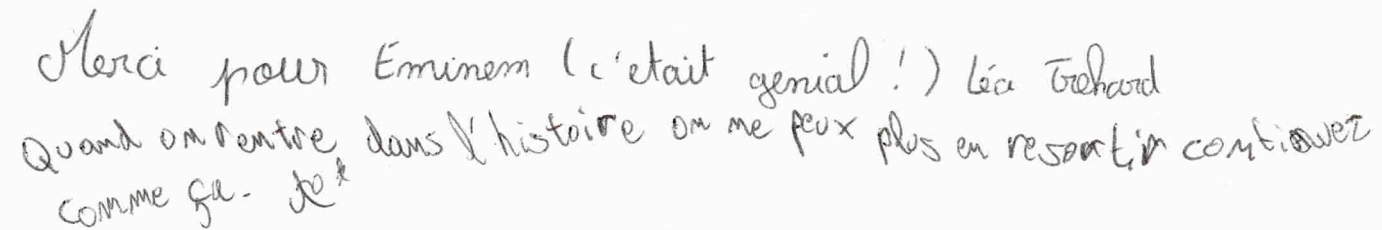 Merci pour Eminem (c'etait genial !) Léa Trehard
Quand on rentre dans l'histoire on ne peux plus en resortir continuez
comme ça.